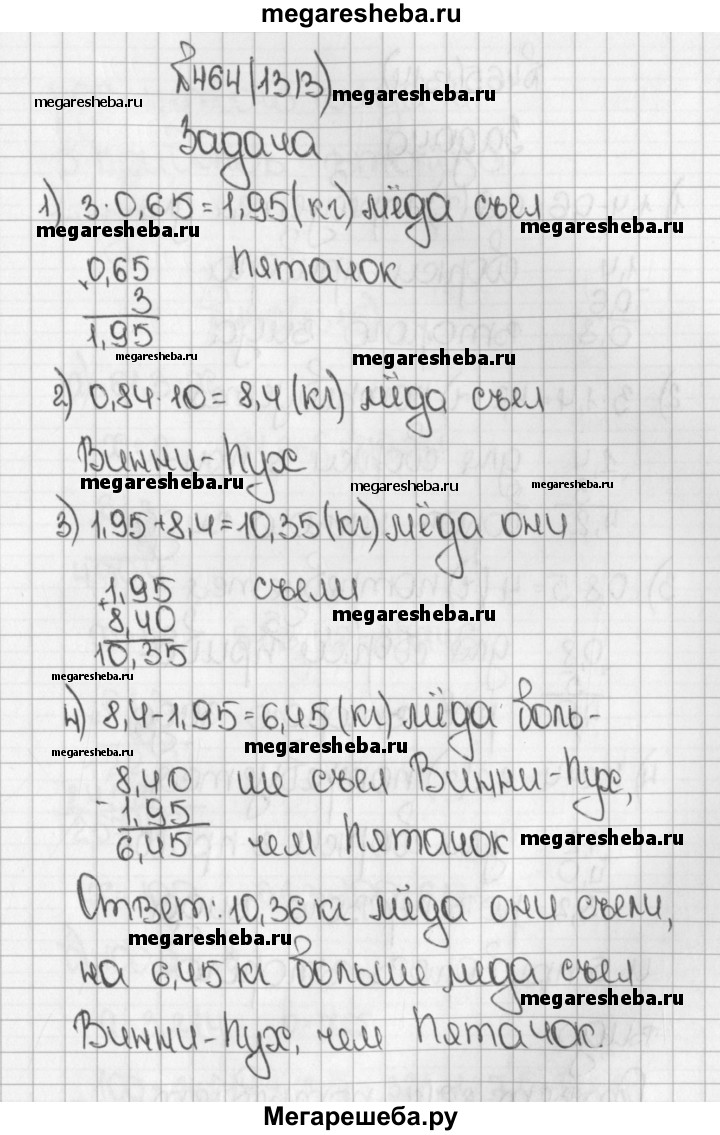 megaresheba.ru
№464(1313)
megaresheba.ru megaresheba.ru
Задача
1) 3·0,65=1,95(кг) мёда съел
megaresheba.ru megaresheba.ru
0,65 Пятачок
× 3
1,95
megaresheba.ru megaresheba.ru
2) 0,84·10=8,4(кг) мёда съел
Винни-Пух
megaresheba.ru megaresheba.ru megaresheba.ru
3) 1,95+8,4=10,35(кг) мёда они
1,95 съели
+ 8,40 megaresheba.ru
10,35
megaresheba.ru
4) 8,4-1,95=6,45(кг) мёда боль-
megaresheba.ru megaresheba.ru
8,40 ше съел Винни-Пух,
- 1,95
6,45 чем Пятачок megaresheba.ru
Ответ: 10,36 кг мёда они съели,
megaresheba.ru
на 6,45 кг больше меда съел
megaresheba.ru
Винни-Пух, чем Пятачок.
Мегарешеба.ру